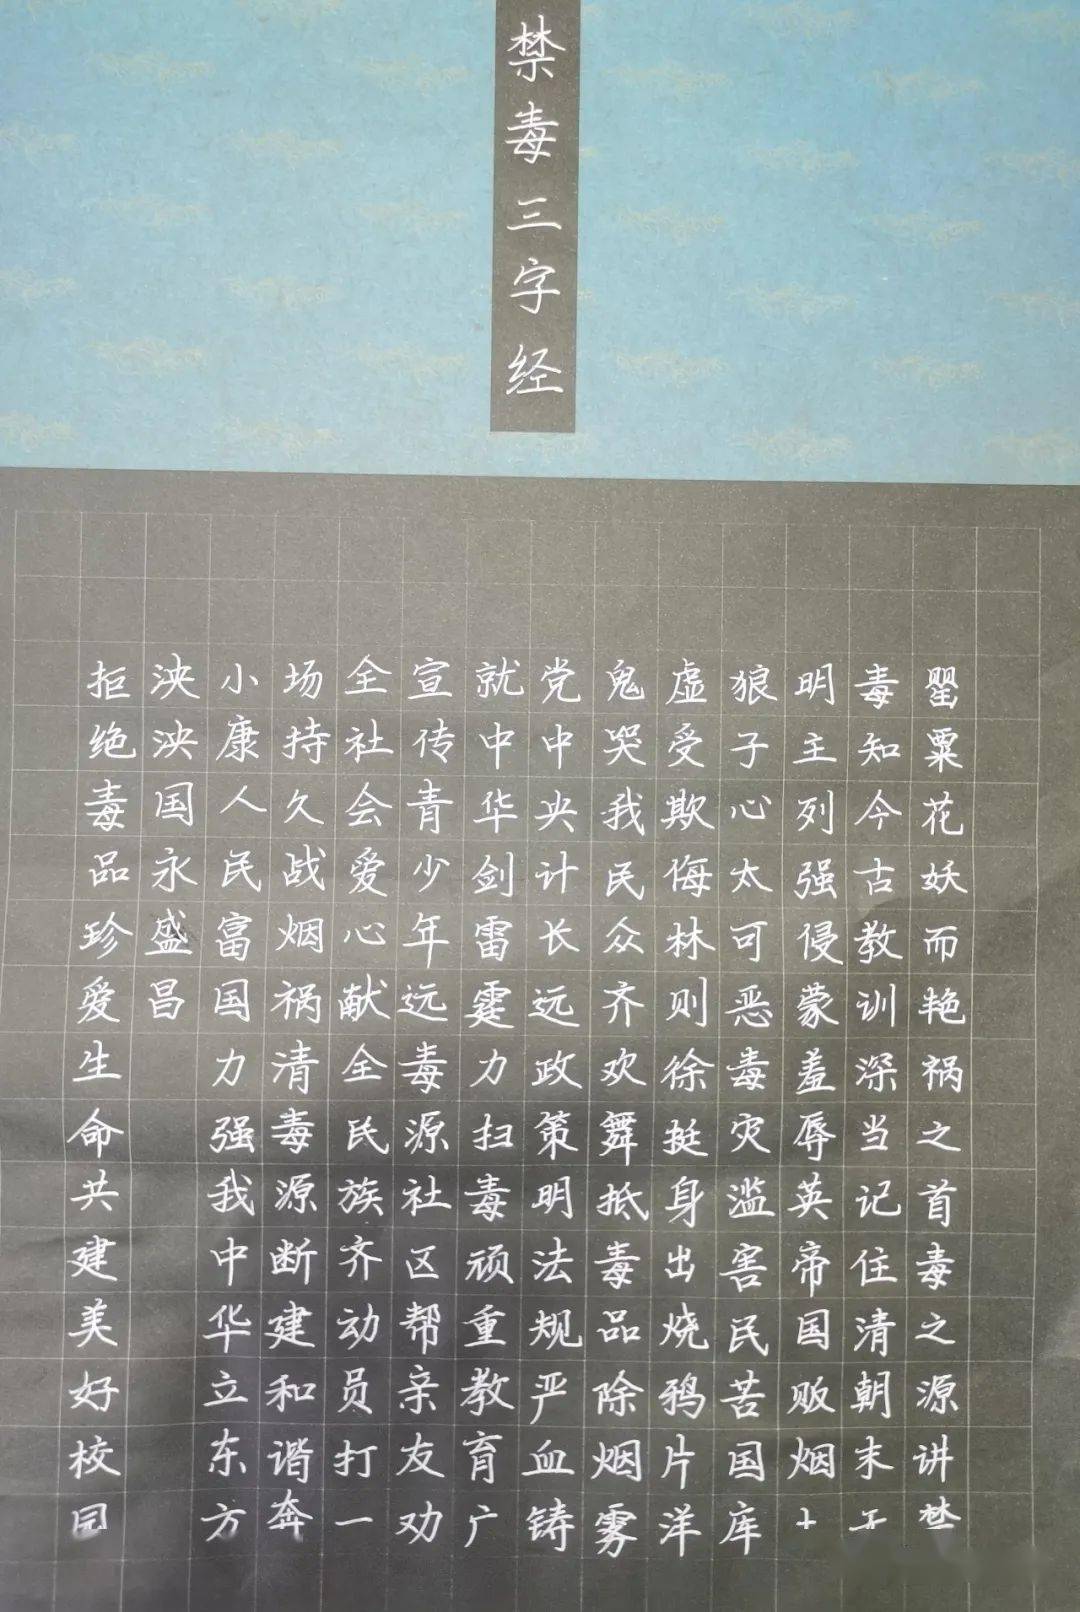 禁毒三字经
罂粟花妖而艳祸之首毒之源讲禁
毒知今古教训深当记住清朝末无
明主列强侵蒙羞辱英帝国贩烟土
狼子心太可恶毒灾滥害民苦国库
虚受欺侮林则徐挺身出烧鸦片洋
鬼哭我民众齐欢舞抵毒品除烟雾
党中央计长远政策明法规严血铸
就中华剑雷霆力扫毒顽重教育广
宣传青少年远毒源社区帮亲友劝
全社会爱心献全民族齐动员打一
场持久战烟祸清毒源断建和谐奔
小康人民富国力强我中华立东方
泱泱国永盛昌
拒绝毒品珍爱生命共建美好校园